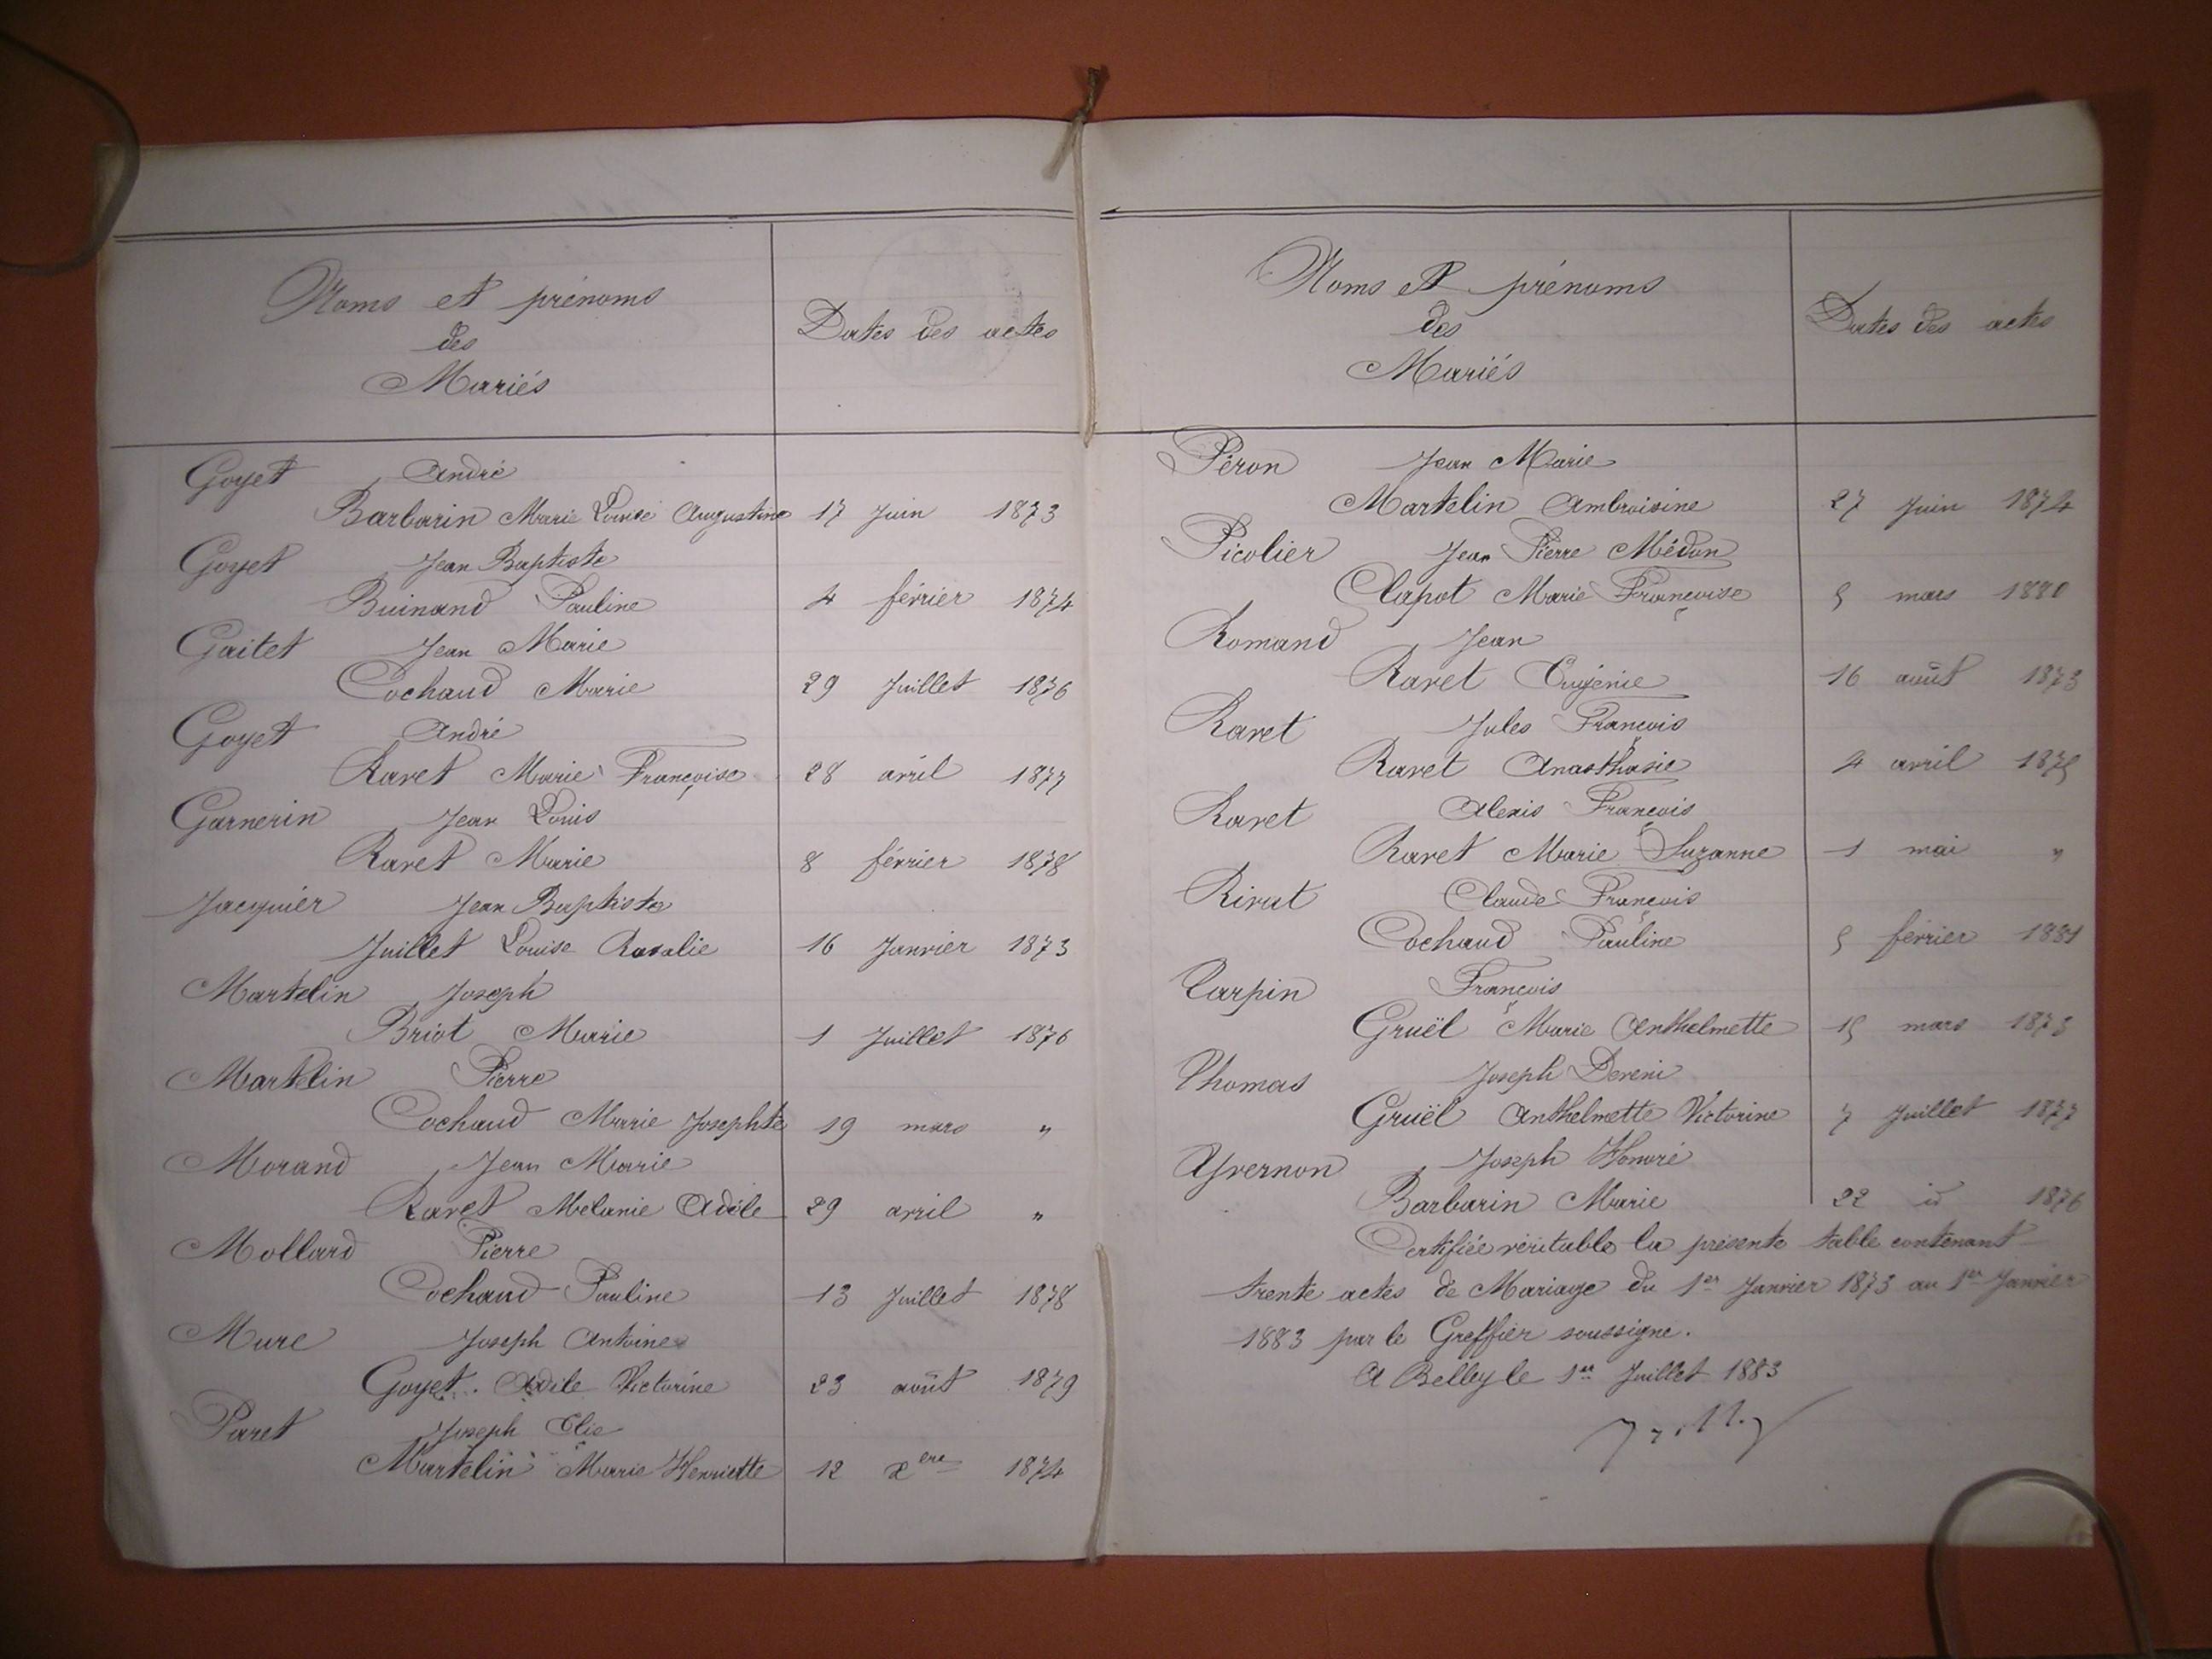 Noms et prénoms
des
Mariés
Dates des actes
Goyet André
Barbarin Marie Louise Augustine 17 Juin 1873
Goyet Jean Baptiste
Buinand Pauline 4 février 1874
Gaitet Jean Marie
Cochaud Marie 29 Juillet 1876
Goyet André
Ravet Marie Françoise 28 avril 1877
Garnerin Jean Louis
Ravet Marie 8 février 1878
Jacquier Jean Baptiste
Juillet Louise Rosalie 16 Janvier 1873
Martelin Joseph
Briot Marie 1 Juillet 1876
Martelin Pierre
Cochaud Marie Josephte 19 mars "
Morand Jean Marie
Ravet Melanie Adèle 29 avril "
Mollard Pierre
Cochaud Pauline 13 Juillet 1878
Mure Joseph Antoine
Goyet Adèle Victorine 23 août 1879
Paret Joseph Elie
Martelin Marie Henriette 12 xere 1874
Noms et prénoms
des
Mariés
Dates des actes
Péron Jean Marie
Martelin Ambroisine 27 Juin 1874
Picolier Jean Pierre Médon
Clapot Marie Françoise 5 mars 1880
Romand Jean
Ravet Eugénie 16 août 1873
Ravet Jules François
Ravet Anasthasie 4 avril 1875
Ravet Alexis François
Ravet Marie Suzanne 1 mai "
Rivat Claude François
Cochaud Pauline 5 février 1881
Tarpin François
Gruël Marie Anthelmette 15 mars
Thomas Joseph
Gruël Anthelmette Victorine 7 Juillet 1877
Yvernon Joseph Honoré
Barbarin Marie 22 id 1876
Certifiée véritable la présente table contenant
trente actes de Mariage du 1er Janvier 1873 au 1er Janvier
1883 par le Greffier soussigne.
A Belley le 1er Juillet 1883